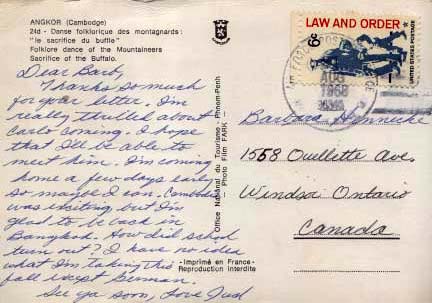 ANGKOR (Cambodge)
24d - Danse folklorique des montagnards:
"le sacrifice du buffle"
Folklore dance of the Mountaineers
Sacrifice of the Buffalo.
Dear Barb,
Thanks so much
for your letter. I'm
really thrilled about
Carlo coming. I hope
that I'll be able to
meet him. I'm coming
home a few days early
so maybe I can. Cambodia
was exciting but I'm
glad to be back in
Bangkok. How did school
turn out? I have no idea
what I'm taking this
fall except German.
See ya soon, Love Jud
Office National du Tourisme - Phnom-Penh
Photo Film FARK
Imprimé en France -
Reproduction Interdite
LAW AND ORDER
6c
UNITED STATES POSTAGE
AUG
1968
Barbara Hennecke
1568 Ouellette Ave.
Windsor Ontario
Canada